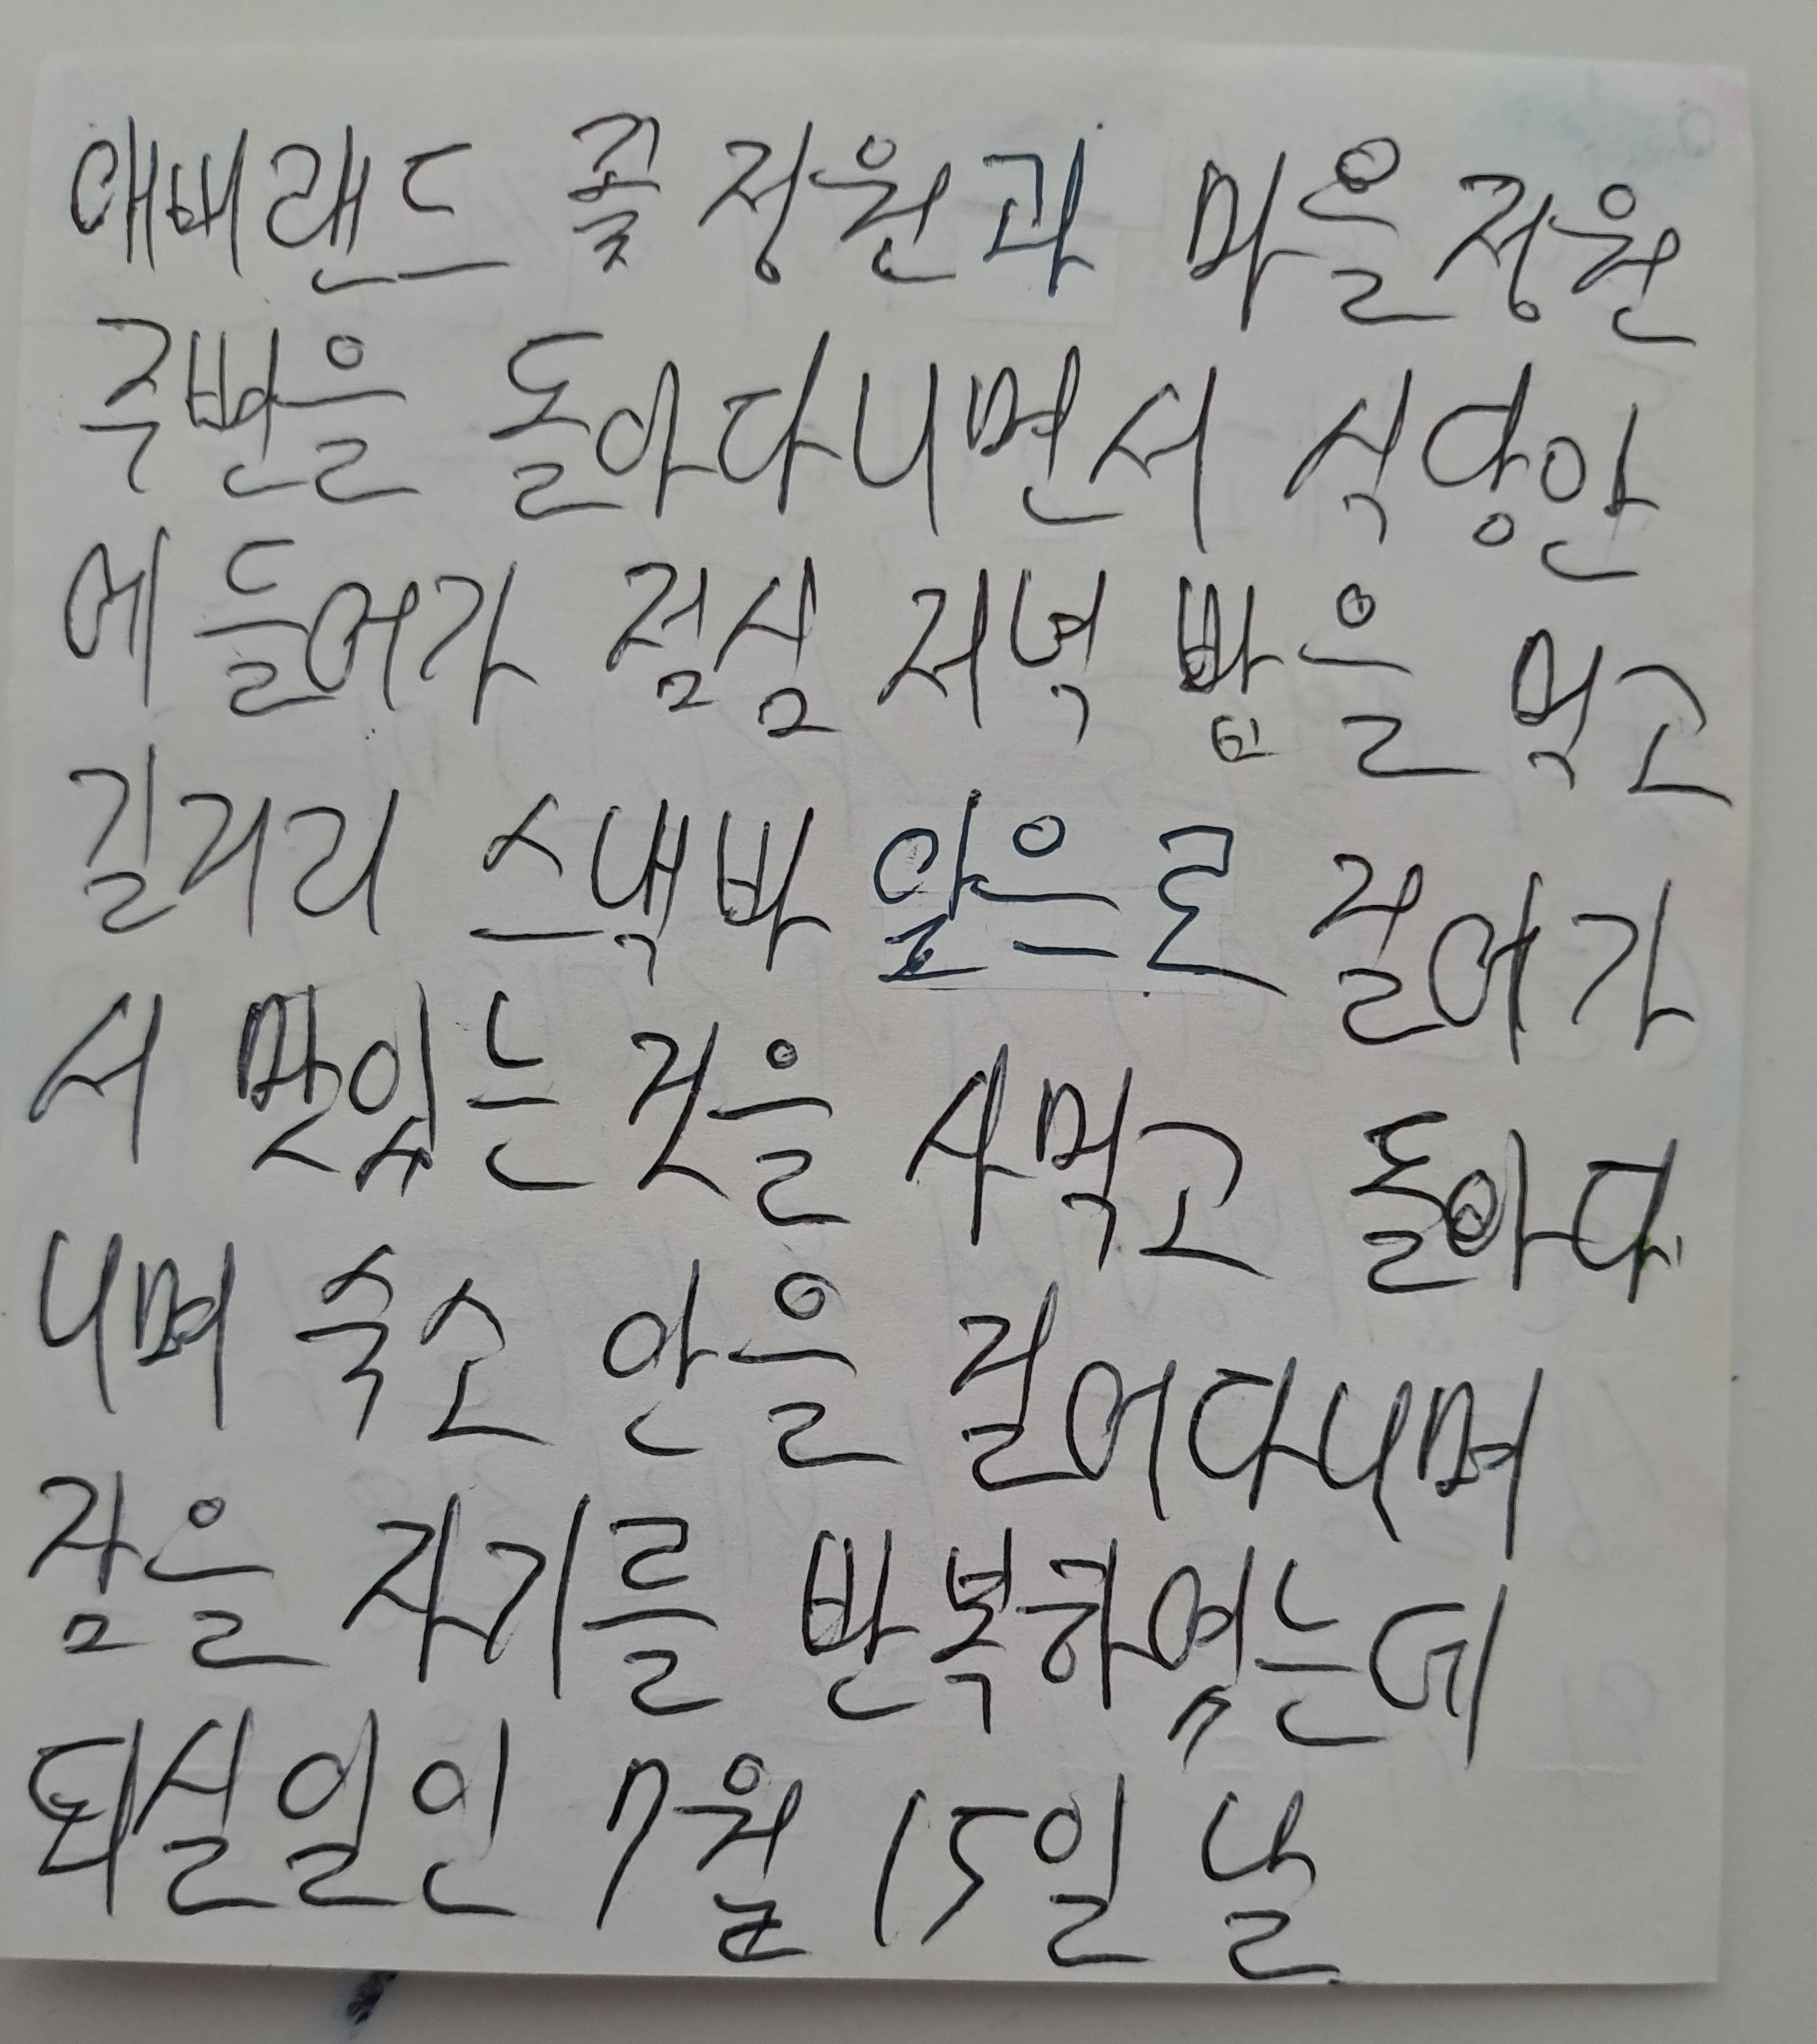 애버랜드 꽃 정원과 마을정원
주변을 돌아다니면서 식당안
에 들어가 점심 저녁 밥을 먹고
길거리 스낵바 앞으로 걸어가
서 맛있는 것을 사먹고 돌아다
니며 숙소 안을 걸어다니며
잠을 자기를 반복하였는데
퇴실일인 7월 15일 날